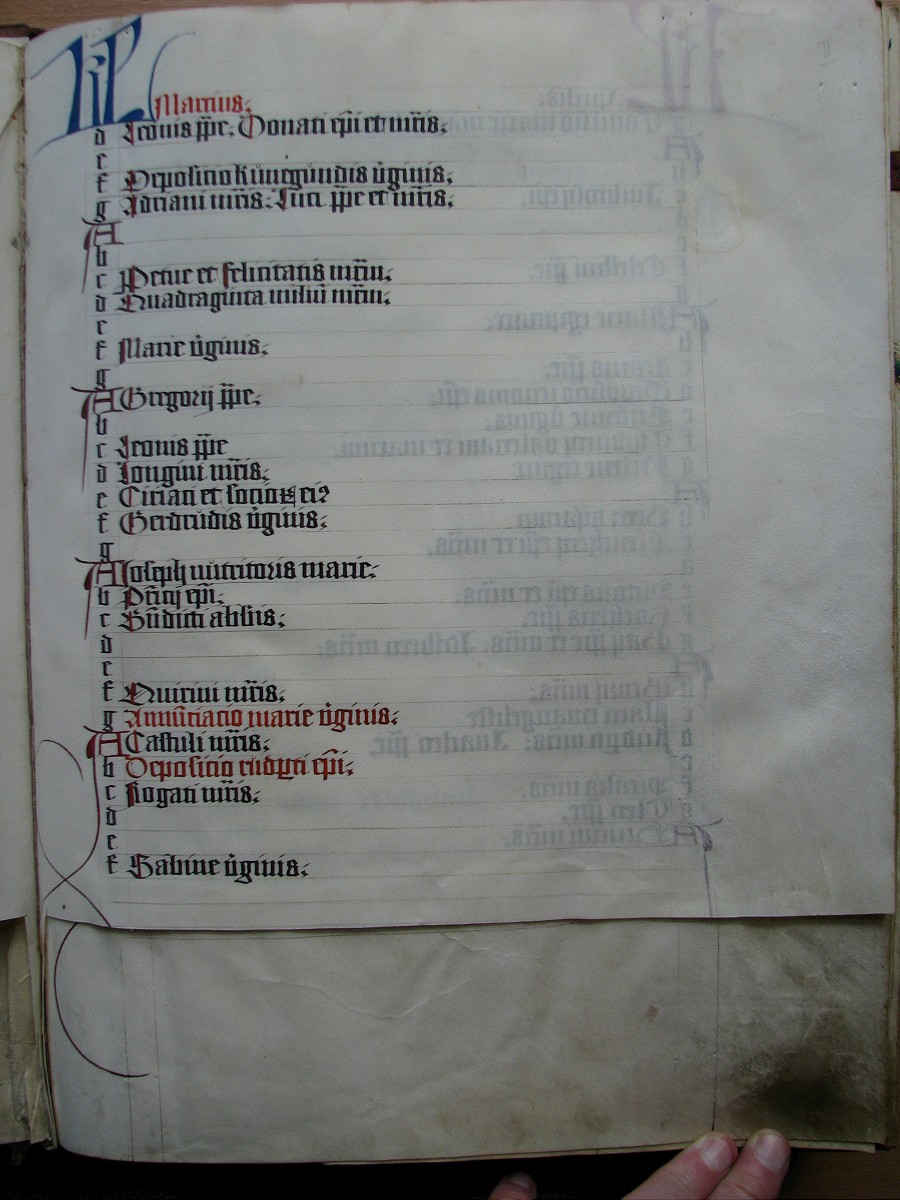 KL
Marcius.
d Leonis ppe. Donati epi et mris.
e
f Depositio kunegundis virginis.
g Adriani mris. Luci ppe et mris.
A
b
c Petue et felicitatis mrm.
d Quadraginta militu mrm.
e
f Marie virginis.
g
A Gregorij ppe.
b
c Leonis ppe
d Longini mris.
e Ciriaci et socioꝝ ei9
f Gerdrudis virginis.
g
A Joseph nutritoris marie.
b
c Bndicti abbtis.
d
e
f Quirini mris.
g Annuciacio marie virginis.
A Castuli mris.
b Deposicio rudpti epi.
c Rogati mris.
d
e
f Sabine virginis.